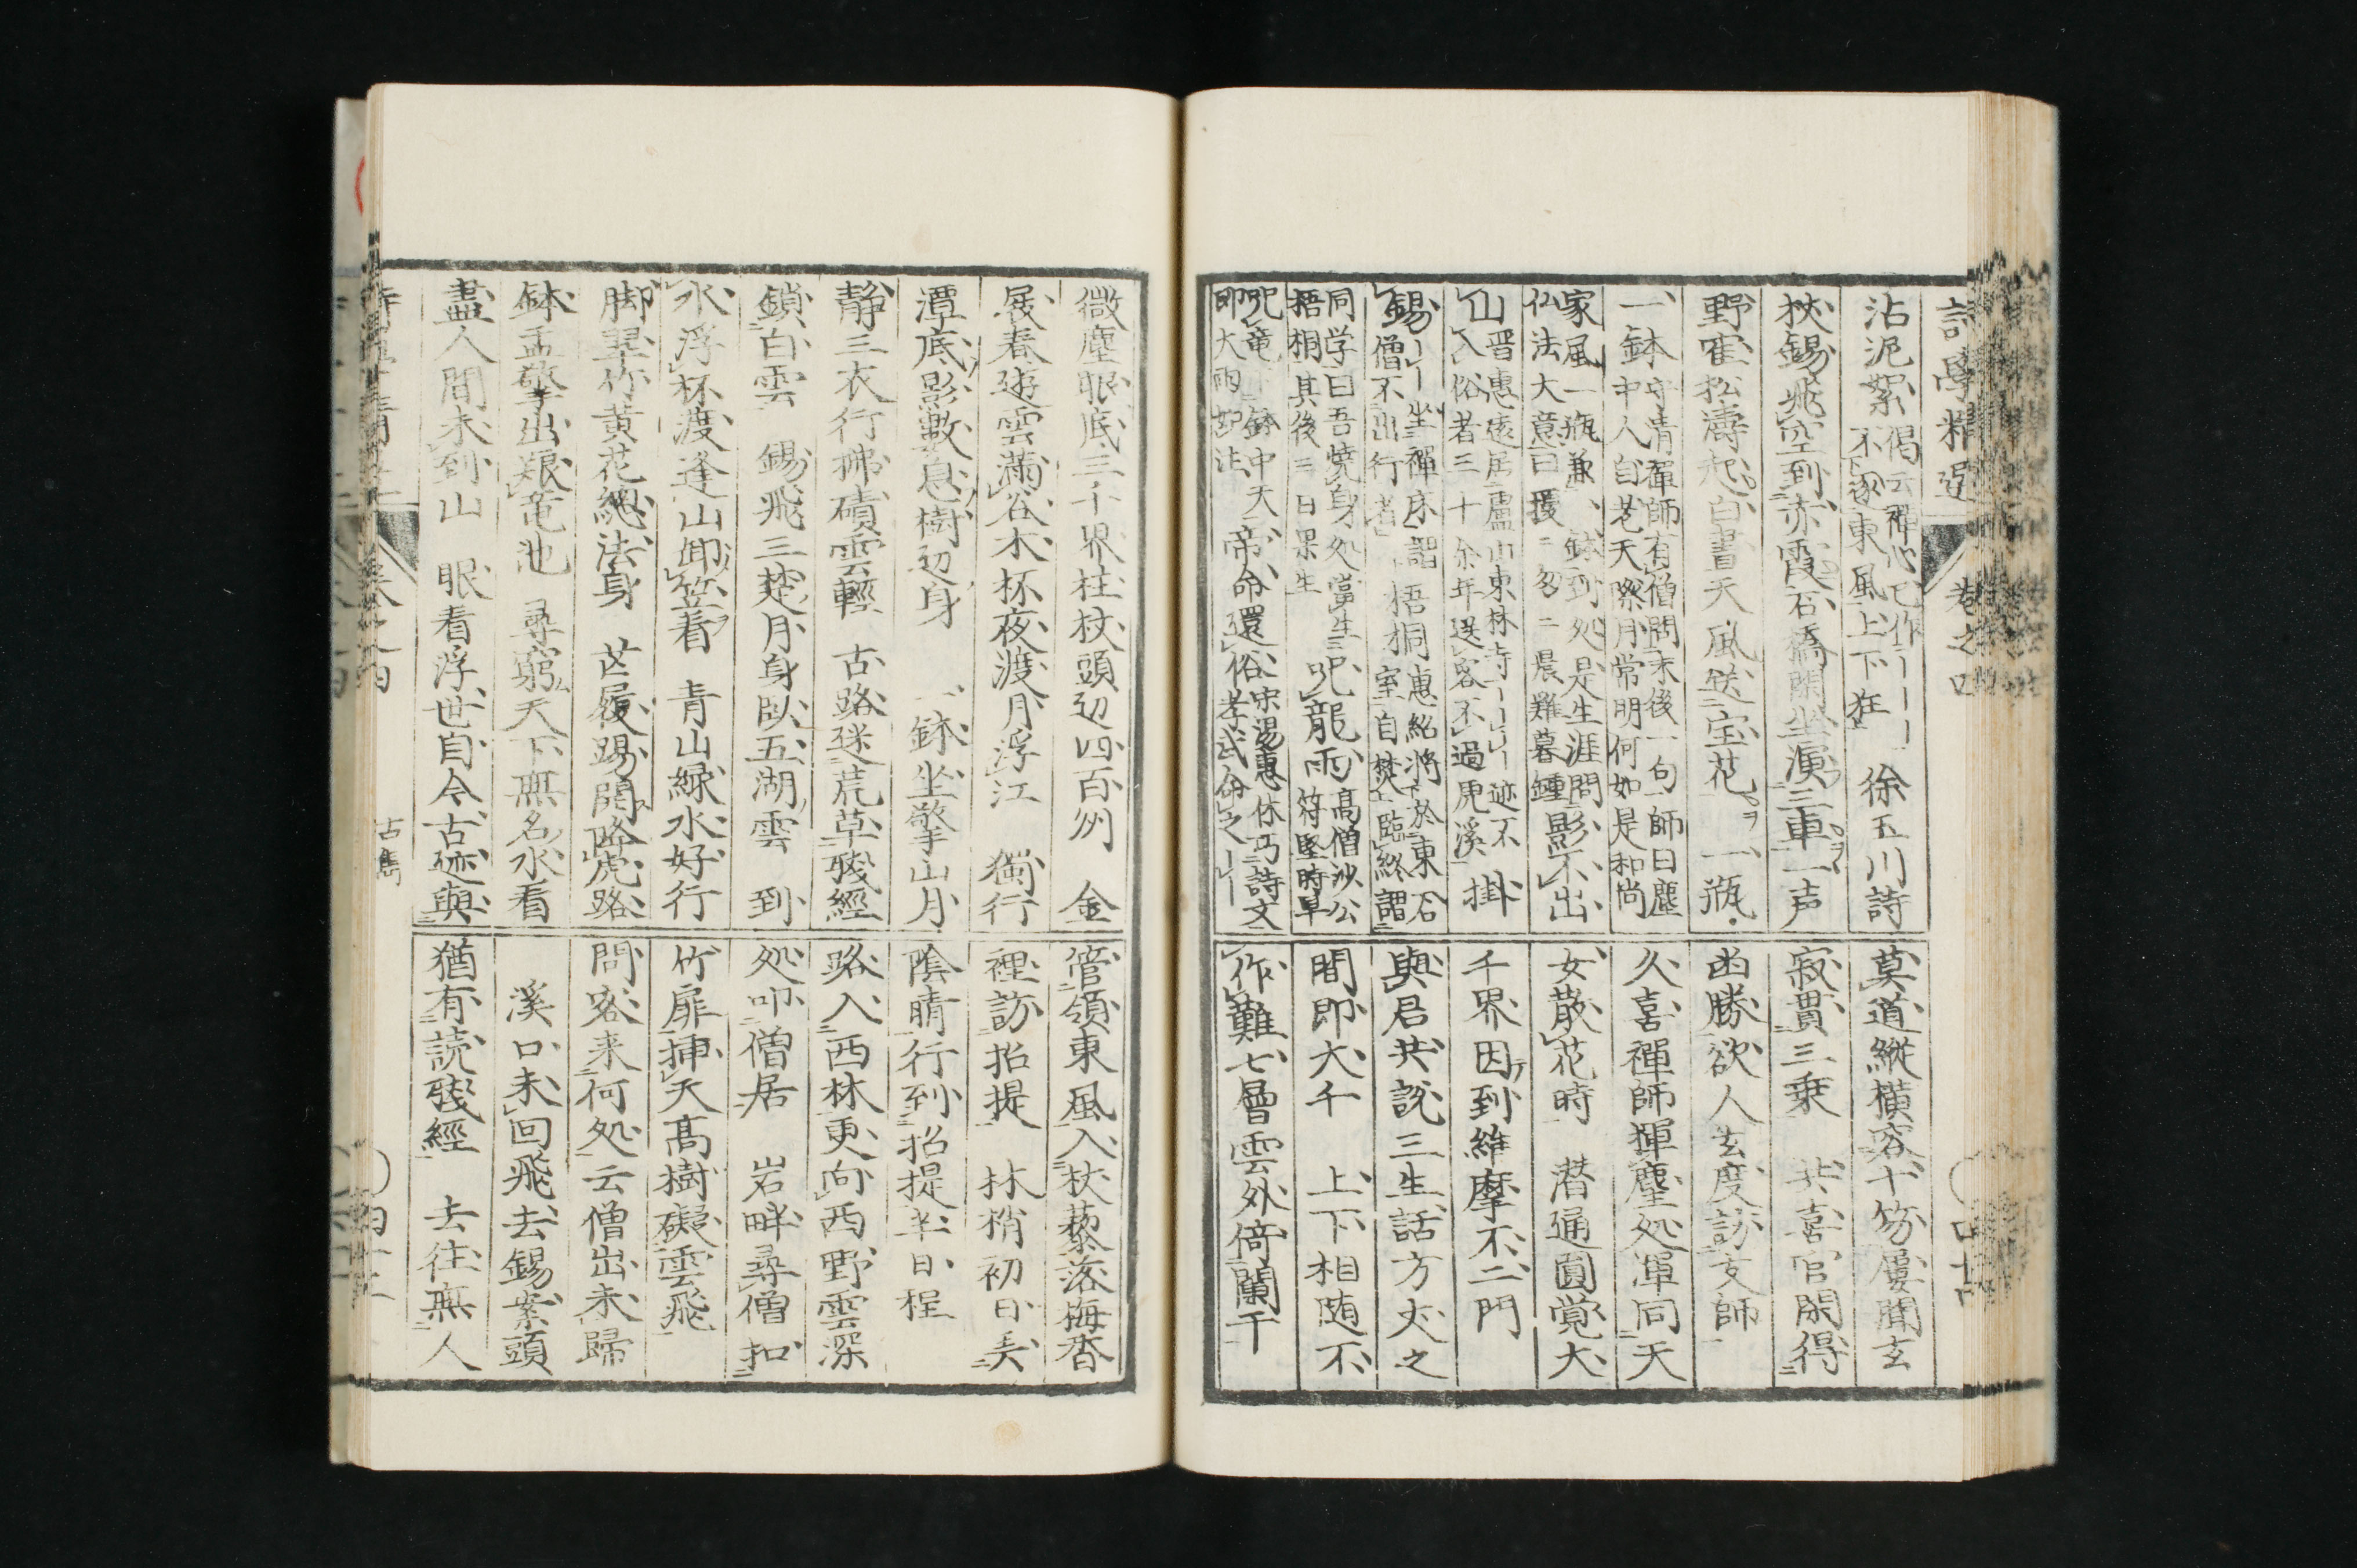 詩學精選 卷之四
沾泥絮 偈云禅心已作｜｜｜
不逐東風上下狂 徐五川詩
杖錫飛空到赤霞石橋閑坐演三車一声
野寉松濤起白晝天風送宝花 一瓶
一鉢 守清禪師有僧問末後一句師曰塵
中人自老天際月常明何如是和尚
家風一瓶兼一鉢到処是生涯問
仏法大意曰擾二匆二晨雞暮鐘 影不出
山 晋惠遠居盧山東林寺｜｜｜迹不
入俗者三十余年送客不過虎溪 掛
錫 ｜｜坐禪床謂
僧不出行者 梧桐 惠紹将於東石
室自焚臨終謂
同学曰吾燒身処當生
梧桐其後三日果生 咒龍雨 高僧沙公
符堅時旱
咒竜下鉢中天
即大雨 帝命還俗 宋湯惠休巧詩文
孝武命之｜｜
莫道縱橫客十笏屢聞玄
寂貫三乗 共喜官閑得
幽勝欲人玄度訪支師
久喜禪師揮塵処渾同天
女散花時 潜通圓覚大
千界因到維摩不二門
與君共説三生話方丈之
間即大千 上下相随不
作難七層雲外倚闌干
微塵眼底三千界柱杖頭辺四百州 金
展春遊雲満谷木杯夜渡月浮江 獨行
潭底影數息樹辺身 一鉢坐擎山月
静三衣行拂磧雲輕 古路迷荒草残經
鎖白雲 錫飛三楚月身臥五湖雲 到
水浮杯渡逢山卸笠着 青山緑水好行
脚翠竹黄花總法身 芒履踢開降虎路
鉢盂擎出艰竜池 尋窮天下無名水看
盡人間未到山 眼看浮世自今古迹與
管領東風入杖藜落梅香
裡訪招提 林梢初日美
陰晴行到招提半日程
路入西林更向西野雲深
処叩僧居 岩畔尋僧扣
竹扉挿天髙樹礙雲飛
問客来何処云僧出未歸
溪口未回飛去錫案頭
猶有読残經 去往無人
卷之四